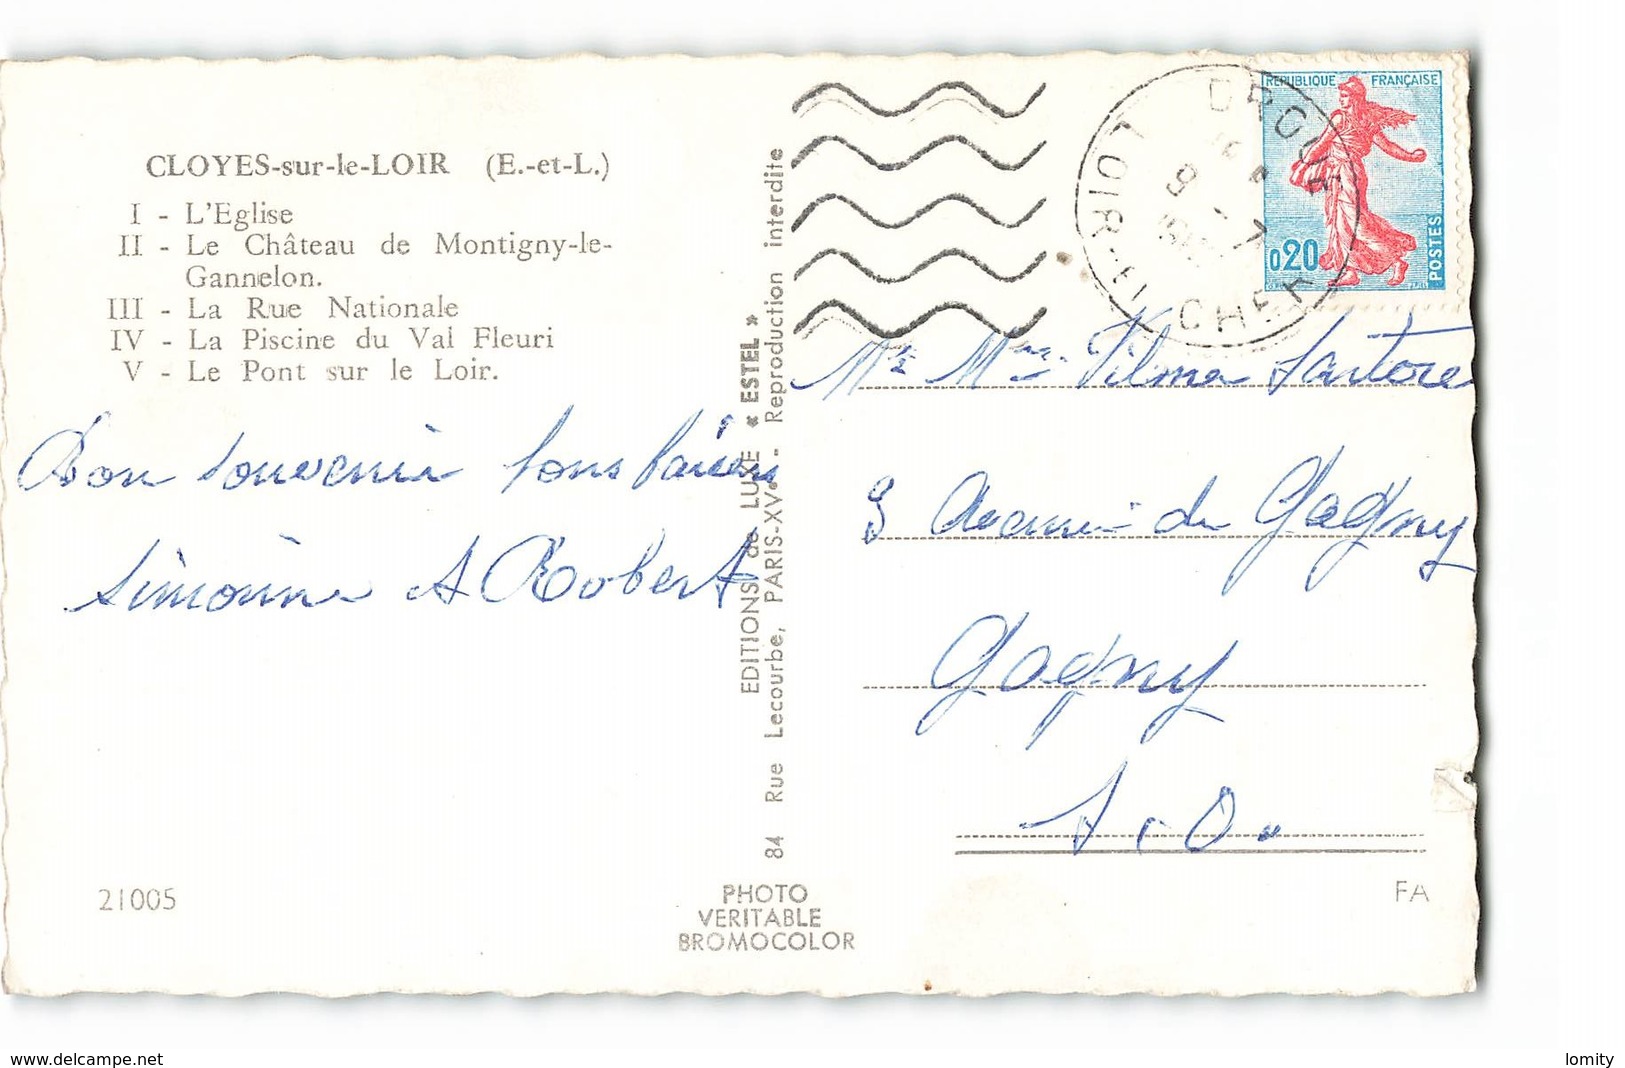 CLOYES-sur-le-LOIR (E.-et-L.)
I - L'Eglise
II - Le Château de Montigny-le-
Gannelon.
III - La Rue Nationale
IV - La Piscine du Val Fleuri
V - Le Pont sur le Loir.
Bon souvenir
Simonne et Robert
21005
EDITIONS de LUXE « ESTEL »
84 Rue Lecourbe, PARIS-XVe - Reproduction interdite
PHOTO
VERITABLE
BROMOCOLOR
REPUBLIQUE FRANÇAISE
0,20
POSTES
DROUE
LOIR-ET-CHER
Mr Mme Vilma Sartore
Avenue de Gagny
Gagny
S.O.
FA
www.delcampe.net
lomity